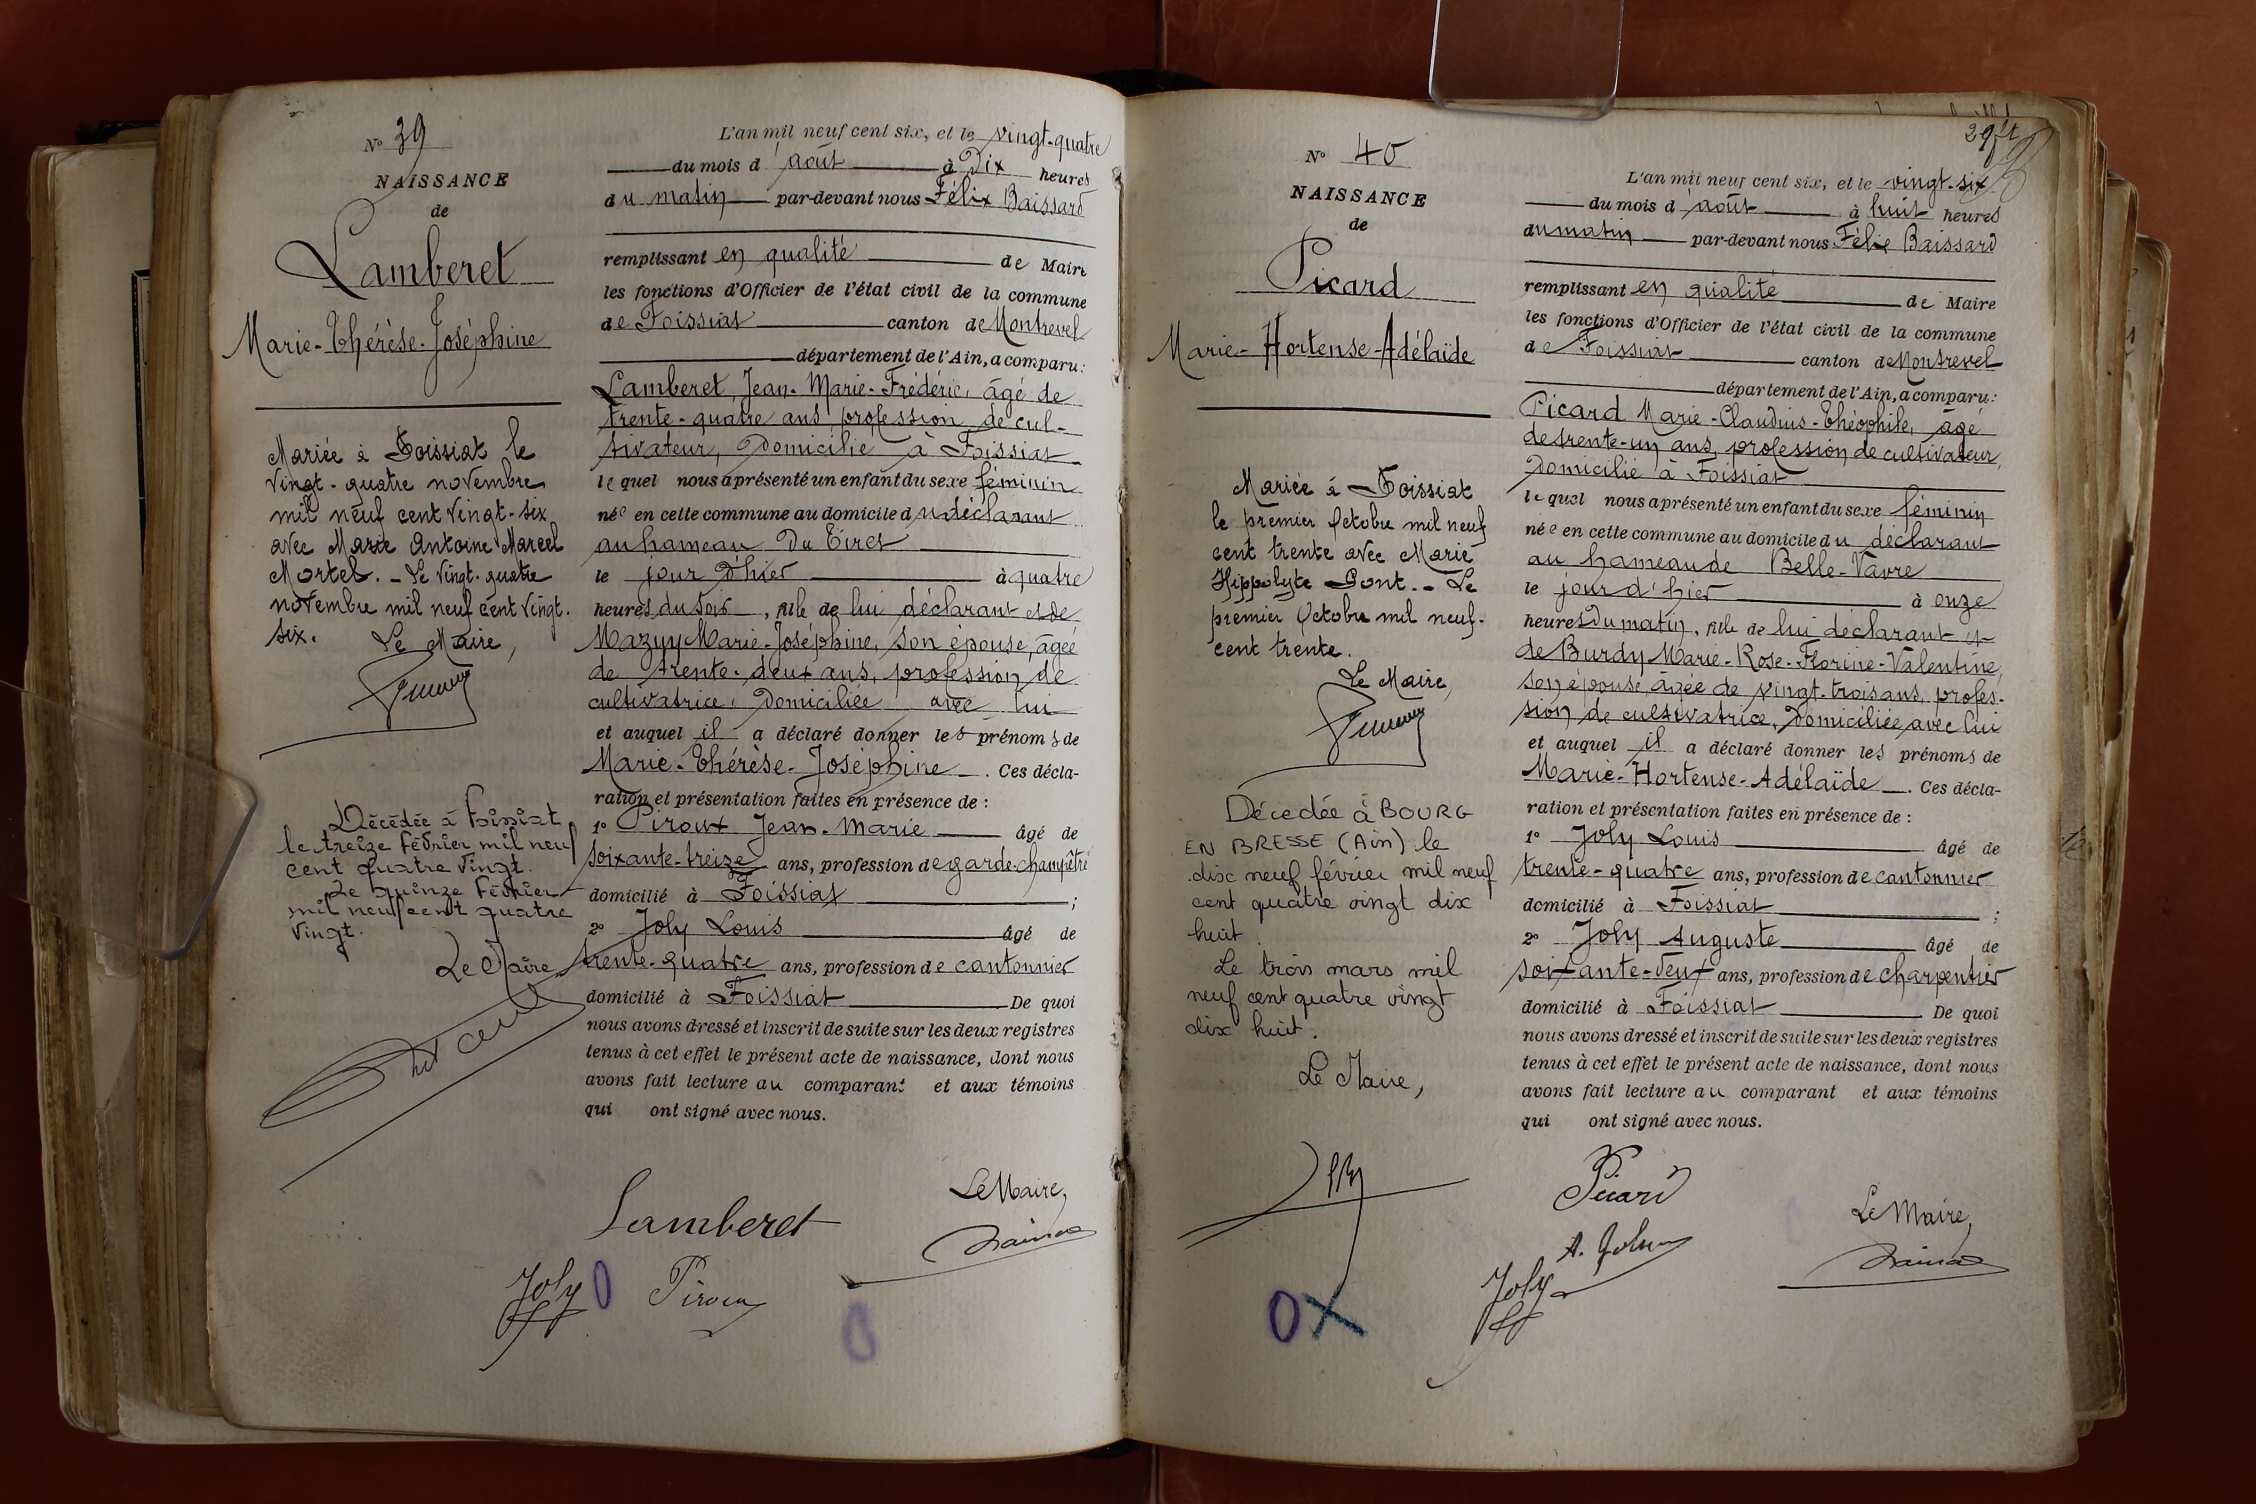 N° 39
NAISSANCE
de
Lamberet
Marie-Thérèse-Joséphine
Mariée à Foissiat le
vingt-quatre novembre
mil neuf cent vingt-six
avec Marie Antoine Marcel
Mortel. - Le vingt-quatre
novembre mil neuf cent vingt-
six.
Le Maire,
Décédée à Foissiat
le treize février mil neuf
cent quatre vingt.
Le quinze février
mil neuf cent quatre
vingt.
Le Maire
L'an mil neuf cent six, et le vingt-quatre
du mois d'août à Dix heures
du matin par-devant nous Félix Baissard
remplissant en qualité de Maire
les fonctions d'Officier de l'état civil de la commune
de Foissiat canton de Montrevel
département de l'Ain, a comparu:
Lamberet, Jean-Marie-Frédéric, âgé de
trente-quatre ans, profession de cul-
tivateur, Domicilié à Foissiat
lequel nous a présenté un enfant du sexe féminin
née en cette commune au domicile du déclarant
au hameau Du Tiret
le jour d'hier à quatre
heures du soir, fille de lui déclarant et de
Mazuy Marie-Joséphine, son épouse, âgée
de trente-deux ans, profession de
cultivatrice, Domiciliée avec lui
et auquel il a déclaré donner les prénoms de
Marie-Thérèse-Joséphine. Ces décla-
ration et présentation faites en présence de :
1° Piroux Jean-Marie âgé de
soixante-treize ans, profession de garde-champêtre
domicilié à Foissiat ;
2° Joly Louis âgé de
trente-quatre ans, profession de cantonnier
domicilié à Foissiat De quoi
nous avons dressé et inscrit de suite sur les deux registres
tenus à cet effet le présent acte de naissance, dont nous
avons fait lecture au comparant et aux témoins
qui ont signé avec nous.
Lamberet
Le Maire,
Joly
Piroux
29
N° 40
NAISSANCE
de
Picard
Marie-Hortense-Adélaïde
Mariée à Foissiat
le premier Octobre mil neuf
cent trente avec Marie
Hippolyte Pont. - Le
premier Octobre mil neuf-
cent trente.
Le Maire,
Décedée à BOURG
EN BRESSE (Ain) le
dix neuf février mil neuf
cent quatre vingt dix
huit.
Le trois mars mil
neuf cent quatre vingt
dix huit.
Le Maire,
L'an mil neuf cent six, et le vingt-six
du mois d'août à huit heures
du matin par-devant nous Félix Baissard
remplissant en qualité de Maire
les fonctions d'Officier de l'état civil de la commune
de Foissiat canton de Montrevel
département de l'Ain, a comparu:
Picard Marie-Claudius-Théophile, âgé
de trente-un ans, profession de cultivateur,
Domicilié à Foissiat
lequel nous a présenté un enfant du sexe féminin
née en cette commune au domicile du déclarant
au hameau de Belle-Vavre
le jour d'hier à onze
heures Du matin, fille de lui déclarant et
de Burdy Marie-Rose-Florine-Valentine,
son épouse, âgée de vingt-trois ans, profes-
sion de cultivatrice, Domiciliée avec lui
et auquel il a déclaré donner les prénoms de
Marie-Hortense-Adélaïde. Ces décla-
ration et présentation faites en présence de :
1° Joly Louis âgé de
trente-quatre ans, profession de cantonnier
domicilié à Foissiat ;
2° Joly Auguste âgé de
soixante-deux ans, profession de charpentier
domicilié à Foissiat De quoi
nous avons dressé et inscrit de suite sur les deux registres
tenus à cet effet le présent acte de naissance, dont nous
avons fait lecture au comparant et aux témoins
qui ont signé avec nous.
Picard
Le Maire,
Joly